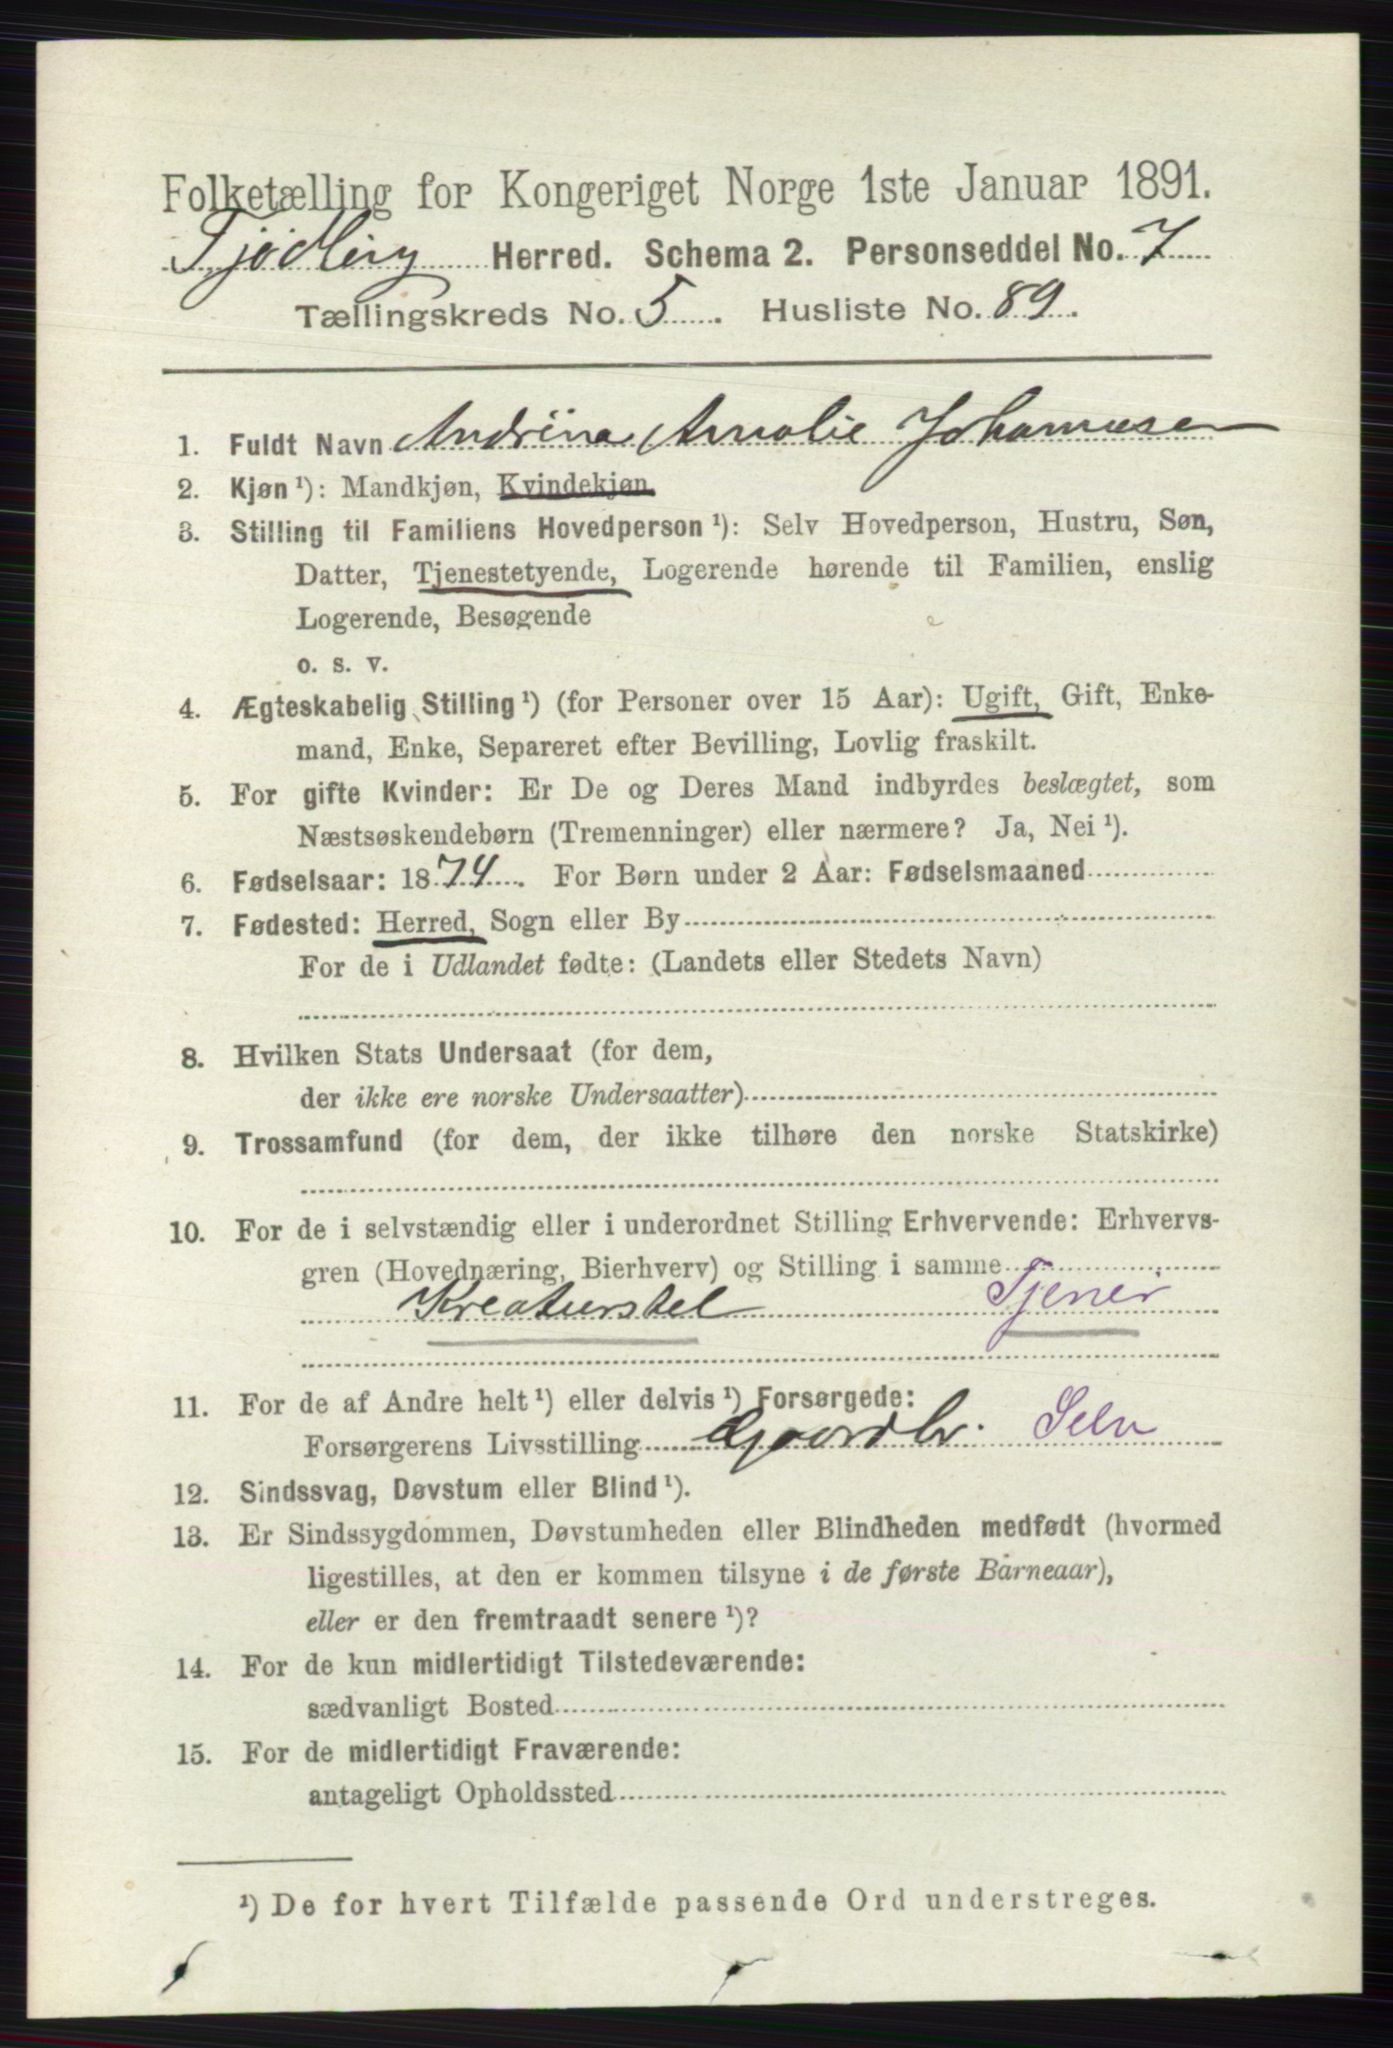 Folketælling for Kongeriget Norge 1ste Januar 1891.
Tjødling Herred. Schema 2. Personseddel No. 7
Tællingskreds No. 5. Husliste No. 89.
1. Fuldt Navn Andrine Amalie Johannesen
2. Kjøn ¹): Mandkjøn, Kvindekjøn.
3. Stilling til Familiens Hovedperson ¹): Selv Hovedperson, Hustru, Søn,
Datter, Tjenestetyende, Logerende hørende til Familien, enslig
Logerende, Besøgende
o. s. v.
4. Ægteskabelig Stilling ¹) (for Personer over 15 Aar): Ugift, Gift, Enke-
mand, Enke, Separeret efter Bevilling, Lovlig fraskilt.
5. For gifte Kvinder: Er De og Deres Mand indbyrdes beslægtet, som
Næstsøskendebørn (Tremenninger) eller nærmere? Ja, Nei ¹).
6. Fødselsaar: 1874. For Børn under 2 Aar: Fødselsmaaned
7. Fødested: Herred, Sogn eller By
For de i Udlandet fødte: (Landets eller Stedets Navn)
8. Hvilken Stats Undersaat (for dem,
der ikke ere norske Undersaatter)
9. Trossamfund (for dem, der ikke tilhøre den norske Statskirke)
10. For de i selvstændig eller i underordnet Stilling Erhvervende: Erhvervs-
gren (Hovednæring, Bierhverv) og Stilling i samme
Kreaturstel Tjener
11. For de af Andre helt ¹) eller delvis ¹) Forsørgede:
Forsørgerens Livsstilling Gaardbr. Selv
12. Sindssvag, Døvstum eller Blind ¹).
13. Er Sindssygdommen, Døvstumheden eller Blindheden medfødt (hvormed
ligestilles, at den er kommen tilsyne i de første Barneaar),
eller er den fremtraadt senere ¹)?
14. For de kun midlertidigt Tilstedeværende:
sædvanligt Bosted
15. For de midlertidigt Fraværende:
antageligt Opholdssted
¹) De for hvert Tilfælde passende Ord understreges.